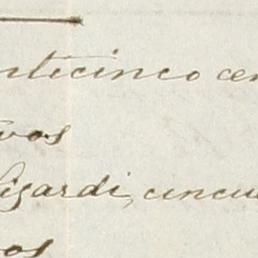 nticinco cen
vos
Lizardi, cincue
os